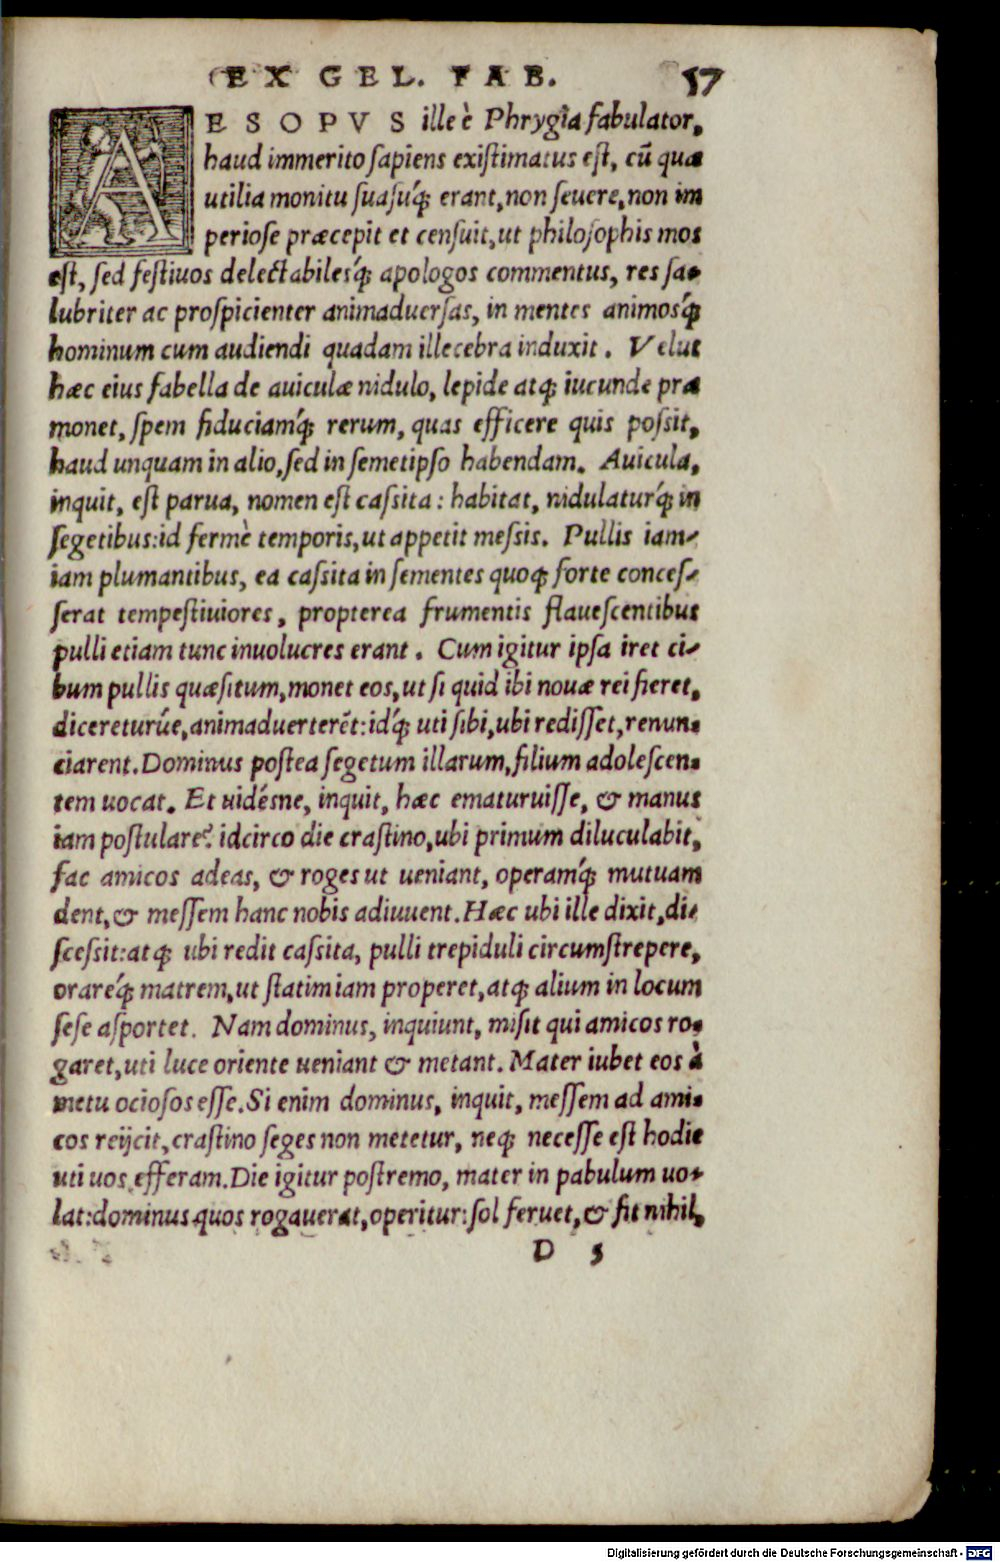 EX GEL. FAB. 57
AESOPVS ille è Phrygia fabulator,
haud immerito sapiens existimatus est, cũ quæ
utilia monitu suasuq́; erant, non seuere, non im
periose præcepit et censuit, ut philosophis mos
est, sed festiuos delectabilesq́; apologos commentus, res sa-
lubriter ac prospicienter animaduersas, in mentes animosq́;
hominum cum audiendi quadam illecebra induxit. Velut
hæc eius fabella de auiculæ nidulo, lepide atq; iucunde præ
monet, spem fiduciamq́; rerum, quas efficere quis possit,
haud unquam in alio, sed in semetipso habendam. Auicula,
inquit, est parua, nomen est cassita: habitat, nidulaturq́; in
segetibus: id fermè temporis, ut appetit messis. Pullis iam-
iam plumantibus, ea cassita in sementes quoq; forte conces-
serat tempestiuiores, propterea frumentis flauescentibus
pulli etiam tunc inuolucres erant. Cum igitur ipsa iret ci-
bum pullis quæsitum, monet eos, ut si quid ibi nouæ rei fieret,
dicereturúe, animaduerterẽt: idq́; uti sibi, ubi redisset, renun-
ciarent. Dominus postea segetum illarum, filium adolescen-
tem uocat. Et uidésne, inquit, hæc ematuruisse, & manus
iam postulare? idcirco die crastino, ubi primum diluculabit,
fac amicos adeas, & roges ut ueniant, operamq́; mutuam
dent, & messem hanc nobis adiuuent. Hæc ubi ille dixit, di-
scessit: atq; ubi redit cassita, pulli trepiduli circumstrepere,
orareq́; matrem, ut statim iam properet, atq; alium in locum
sese asportet. Nam dominus, inquiunt, misit qui amicos ro-
garet, uti luce oriente ueniant & metant. Mater iubet eos à
metu ociosos esse. Si enim dominus, inquit, messem ad ami-
cos reijcit, crastino seges non metetur, neq; necesse est hodie
uti uos efferam. Die igitur postremo, mater in pabulum uo-
lat: dominus quos rogauerat, operitur: sol feruet, & fit nihil,
D 5
Digitalisierung gefördert durch die Deutsche Forschungsgemeinschaft - DFG